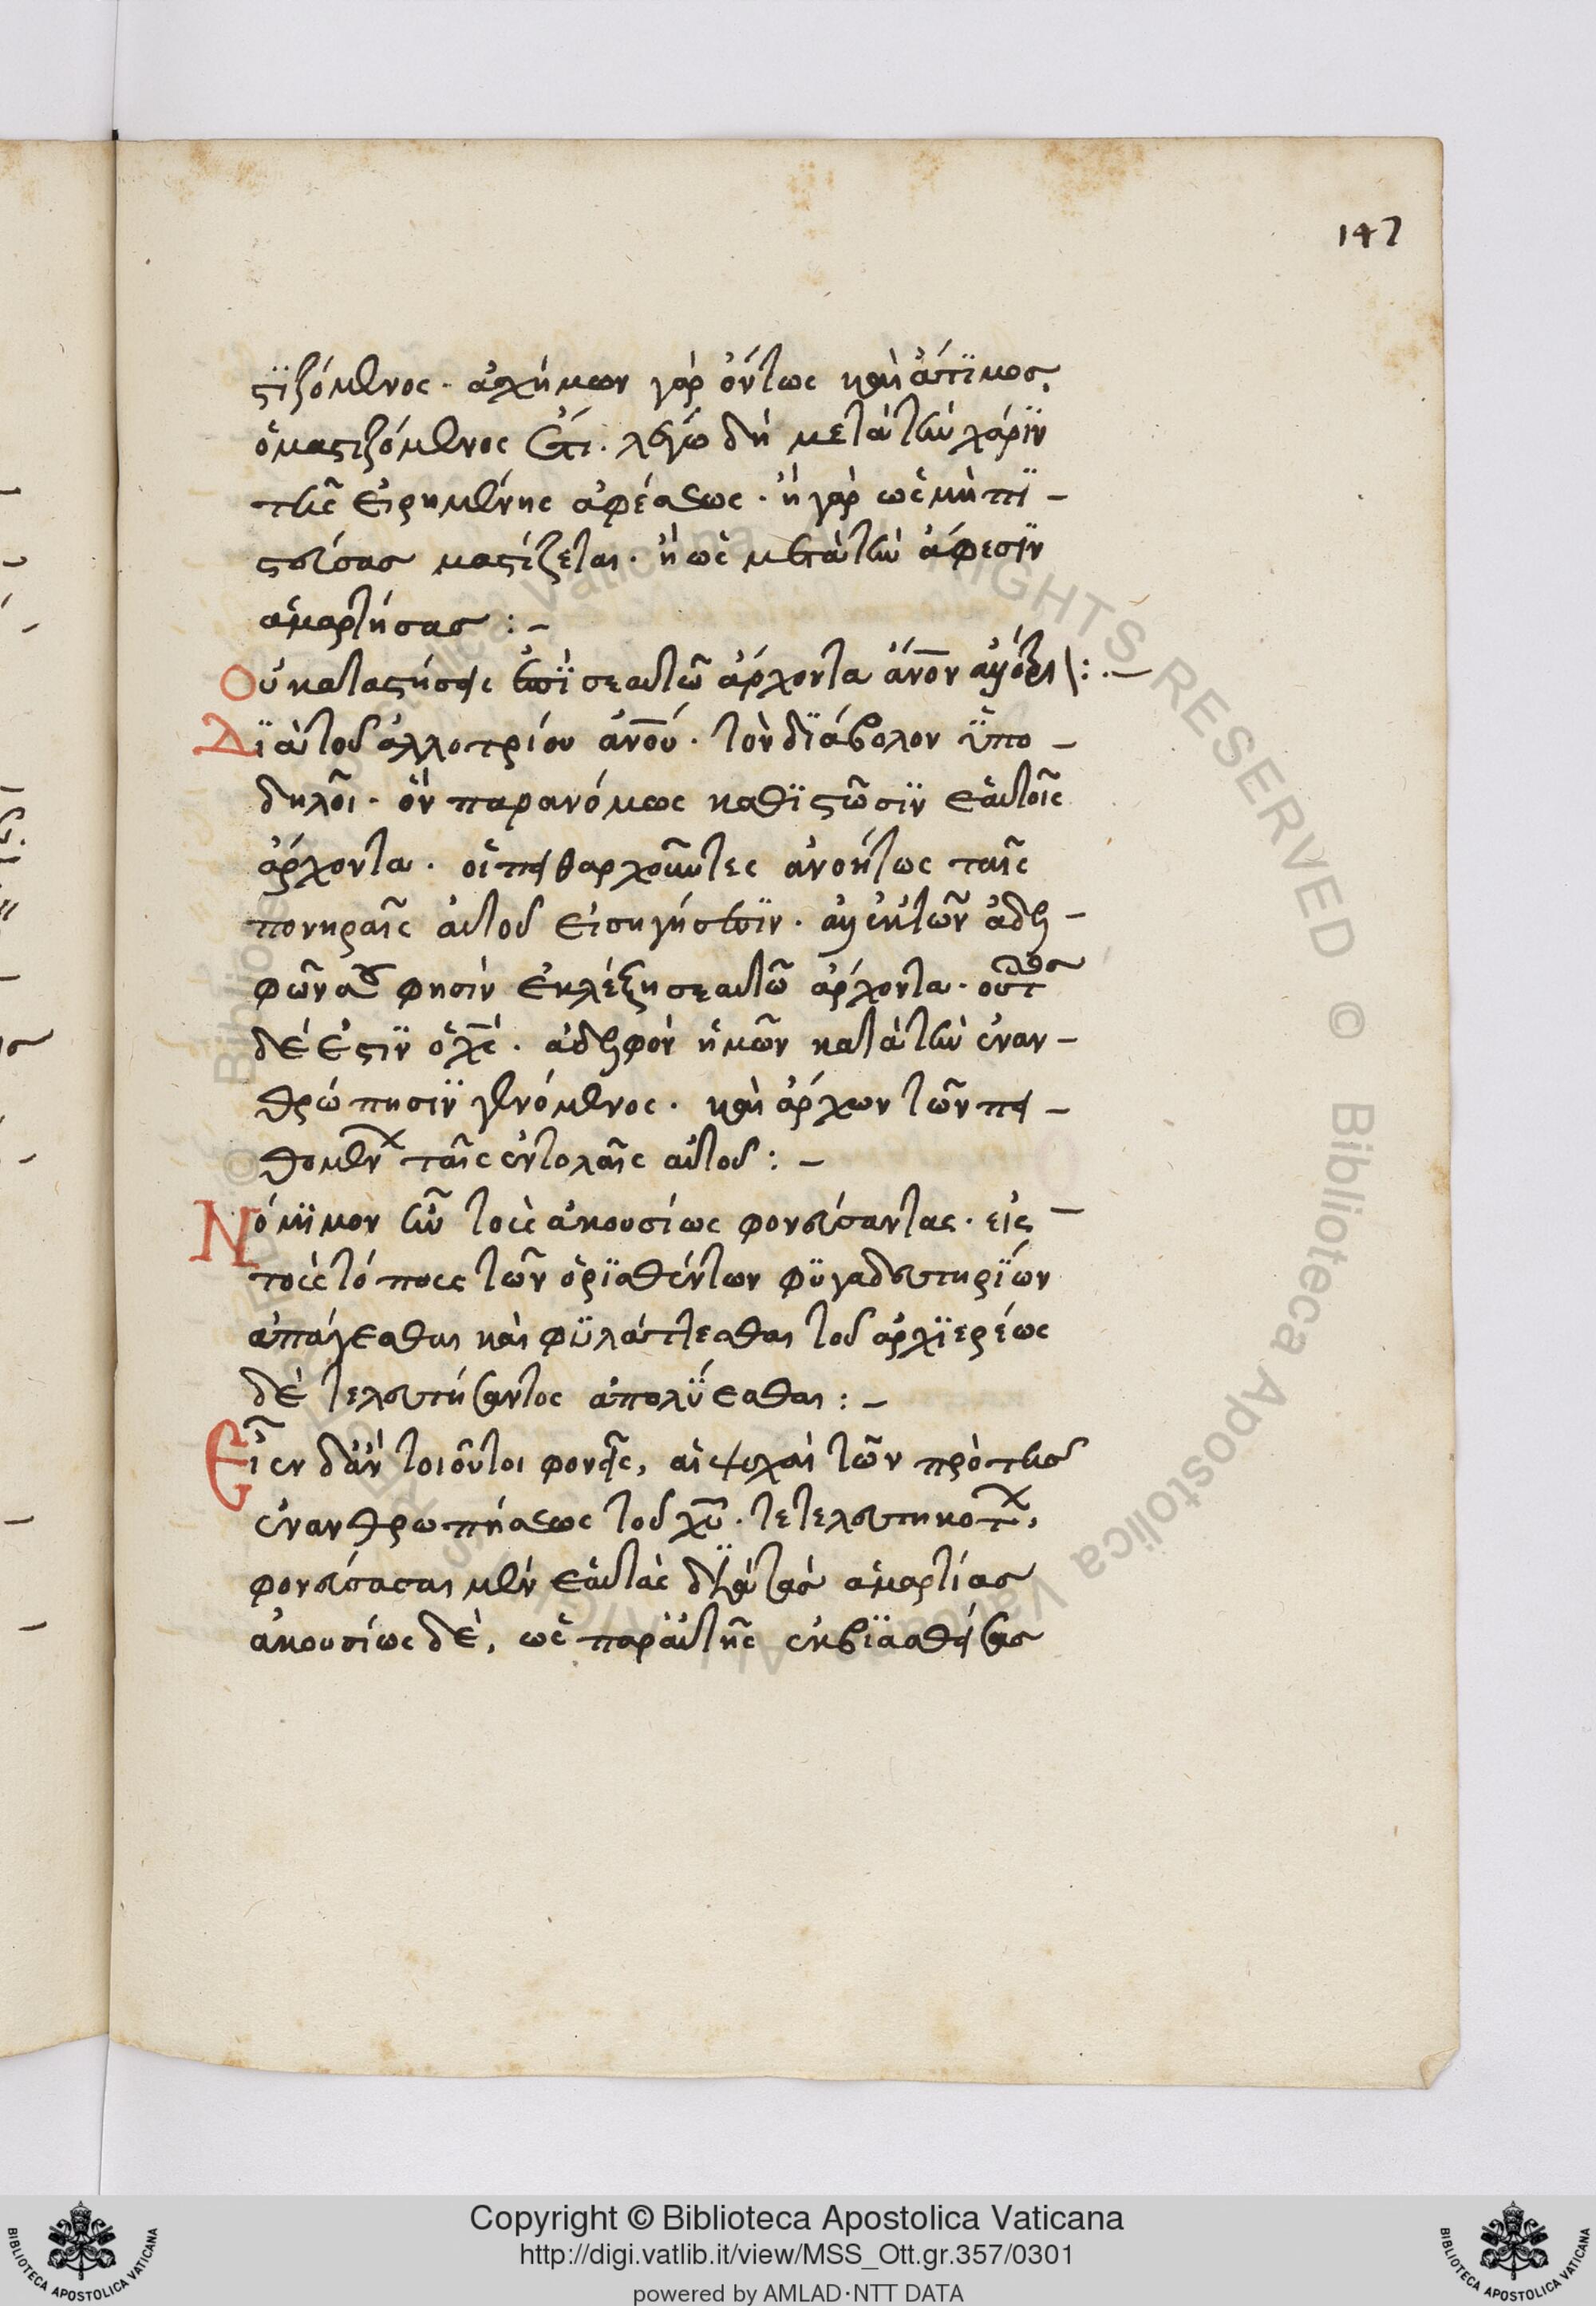 147
ςϊζόμενος · ἀσχήμων γὰρ ὄντως καὶ ἄτϊμος,
ὁ μαςιζόμενος ἔτι. λέγω δὴ μετὰ τὴν χάρϊν
τῆς εἰρημένης ἀφέσεως · ἢ γὰρ ὡς μὴ πϊ -
ςεύσας μαςίζεται · ἢ ὡς μετὰ τὴν ἄφεσϊν
ἁμαρτήσας : -
Οὐ καταςήσεις ἐπϊ σεαυτῶ ἄρχοντα ἄνον ἀλλότρι : . —
Δϊὰ τοῦ ἀλλοτρίου ἀνου · τὸν δϊάβολον ϋπο -
δηλοῖ · ὃν παρανόμως καθϊςῶσϊν ἑαυτοῖς
ἄρχοντα · οἱ πειθαρχοῦντες ἀνοήτως ταῖς
πονηραῖς αὐτοῦ εἰσηγήσεσϊν · ἀλλ' ἐκ τῶν ἀδελ -
φῶν σου φησὶν ἐκλέξη σεαυτῶ ἄρχοντα · οὗτος
δέ ἐςϊν ὁ χς · ἀδελφὸν ἡμῶν κατὰ τὴν ἐναν -
θρώπησϊν γενόμενος · καὶ ἄρχων τῶν πει -
θομένων ταῖς ἐντολαῖς αὐτοῦ : -
Νόμϊμον ἦν τοὺς ἀκουσίως φονεύσαντας · εἰς —
τοὺς τόπους τῶν ὁρϊσθέντων φϋγαδευτηρϊών
ἀπάγεσθαι καὶ φϋλάττεσθαι τοῦ ἀρχϊερέως
δὲ τελευτήσαντος ἀπολϋεσθαι : -
Εἶεν δ' ἂν τοιοῦτοι φονεῖς, αἱ ψυχαὶ τῶν πρὸ τῆς
ἐνανθρωπήσεως τοῦ χυ · τετελευτηκότων,
φονεύσασαι μὲν ἑαυτὰς δϊὰ τὰς ἁμαρτίας
ἀκουσίως δὲ, ὡς παρ' αὐτῆς ἐκβϊασθείσας
Copyright © Biblioteca Apostolica Vaticana
http://digi.vatlib.it/view/MSS_Ott.gr.357/0301
powered by AMLAD·NTT DATA